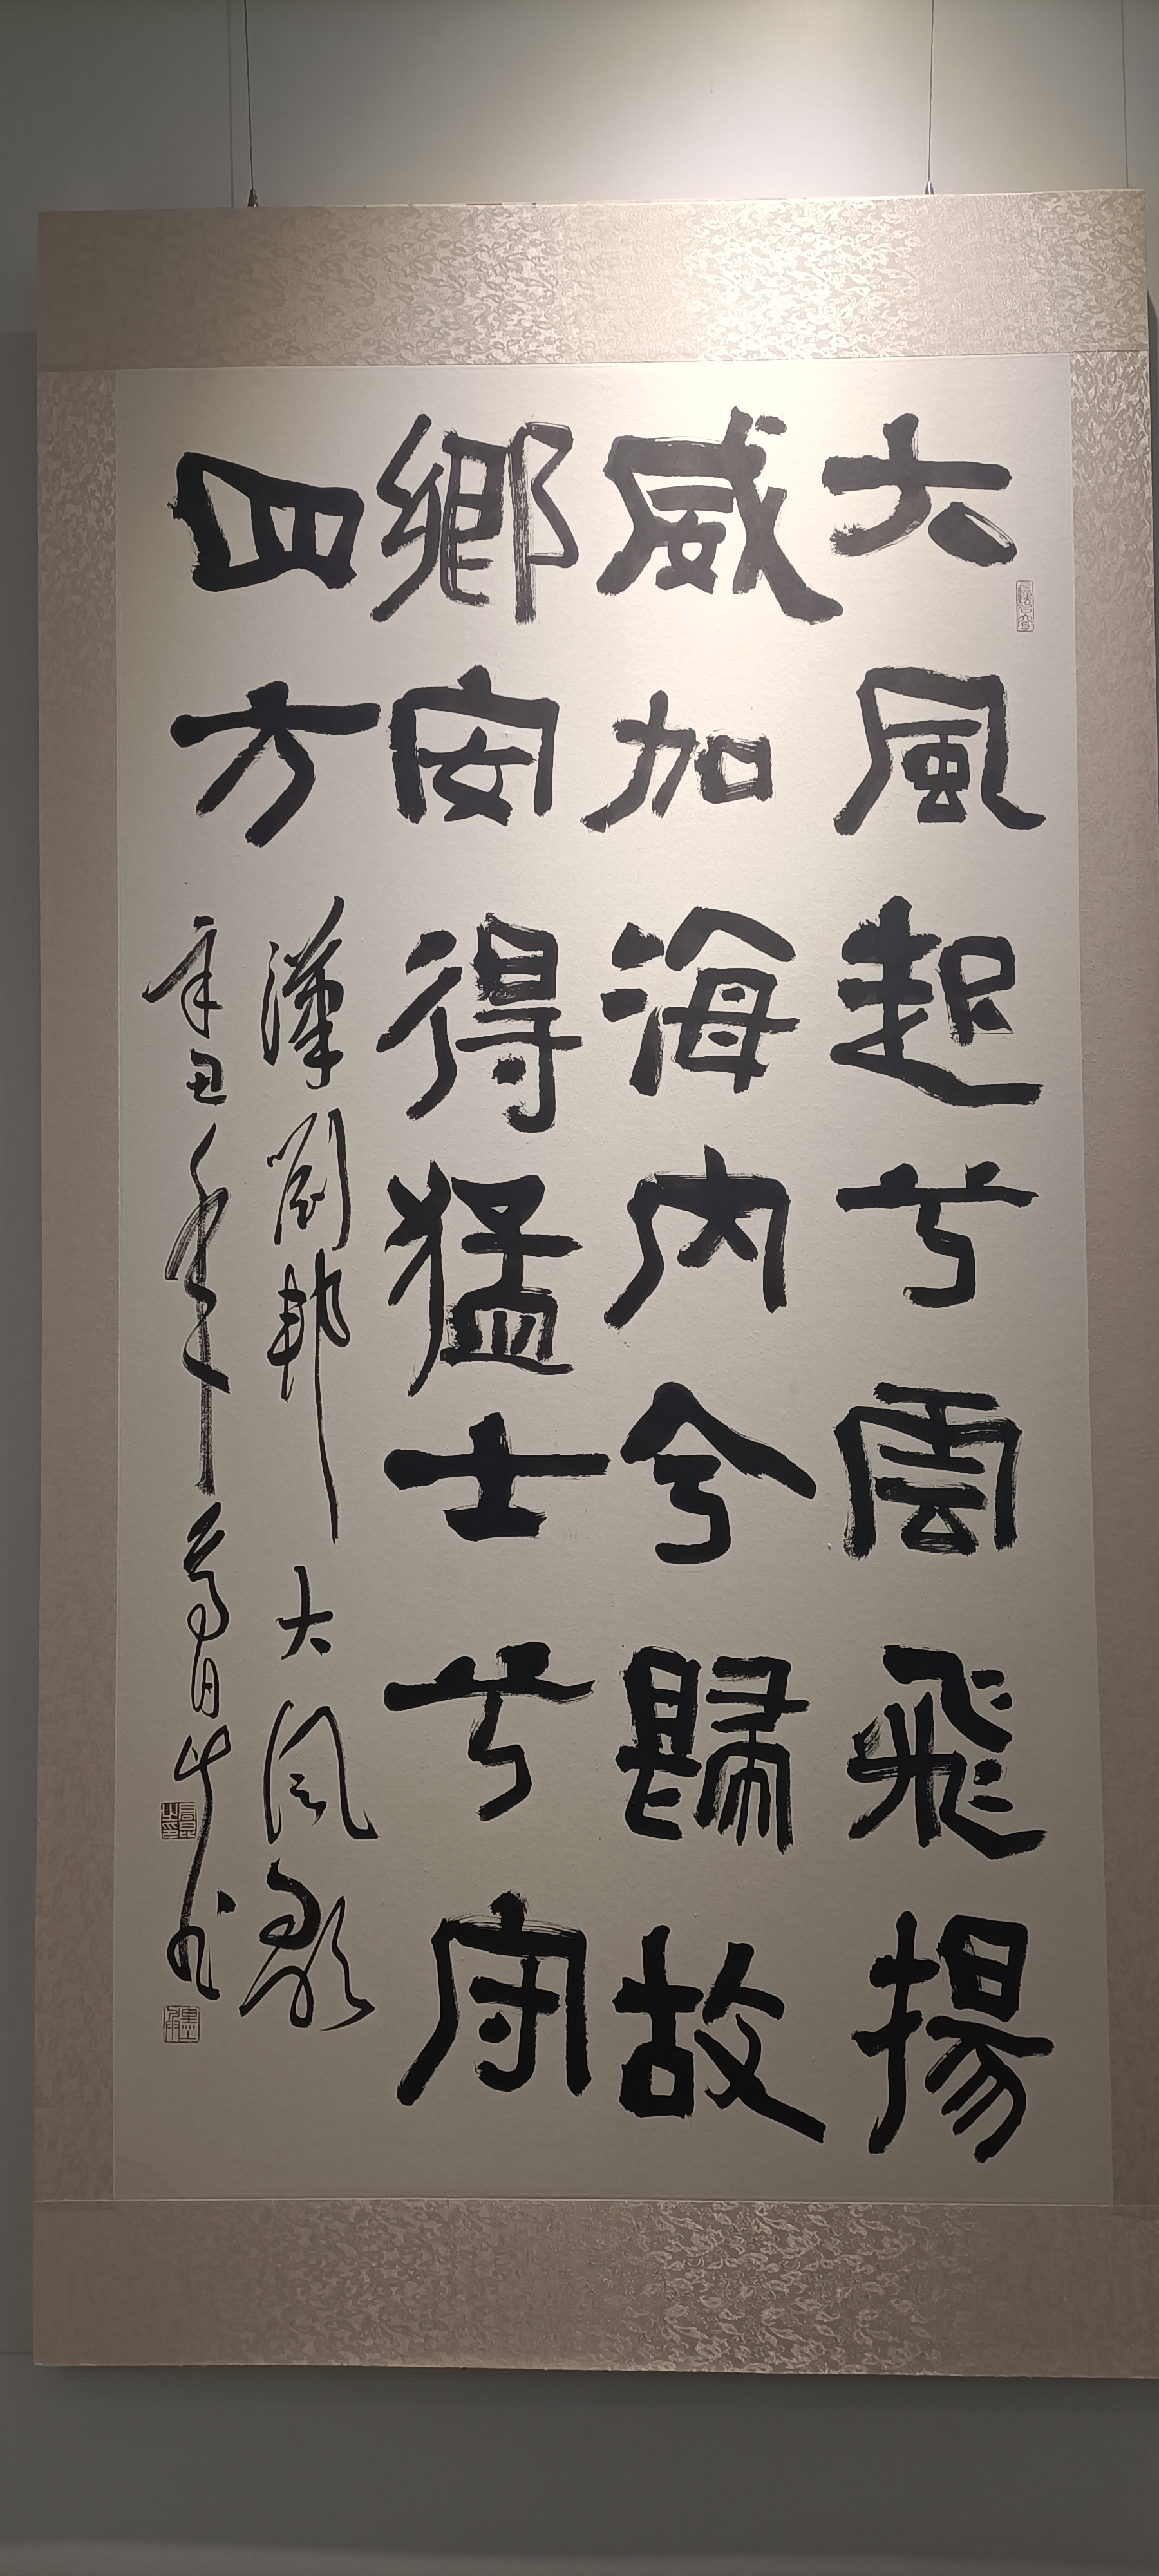 大風起兮雲飛揚
威加海内兮歸故
鄉安得猛士兮守
四方
漢劉邦大风歌
辛丑年